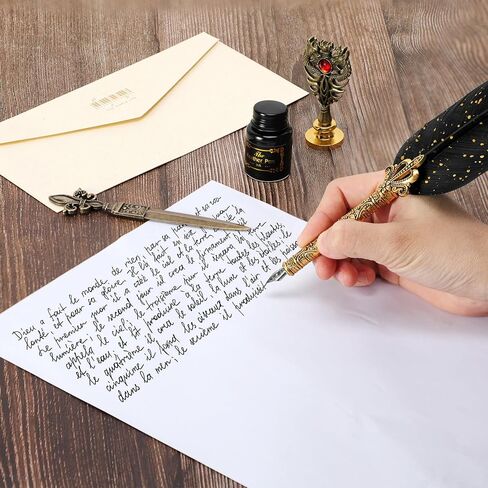 The
Feather Pen
Dieu a fait le monde de rien, par sa parole et sa vo
lonté et pour sa gloire. Il l'a fait en six
Le premier jour il a créé le ciel et la terre
lumière; le second jour il créa le firmament
appela le ciel; le troisième jour il sépara
et l'eau, et fit produire à la terre toutes les plantes;
le quatrième il créa le soleil, la lune et les étoiles; le
cinquième il forma les oiseaux dans l'air et les poissons
dans la mer; le sixième il produisit